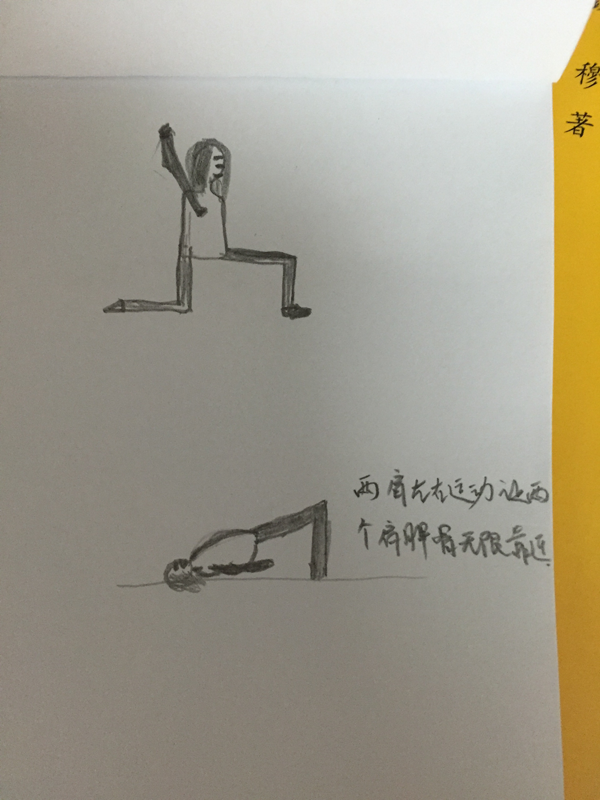 穆
著
两肩左右运动让两
个肩胛骨无限靠近